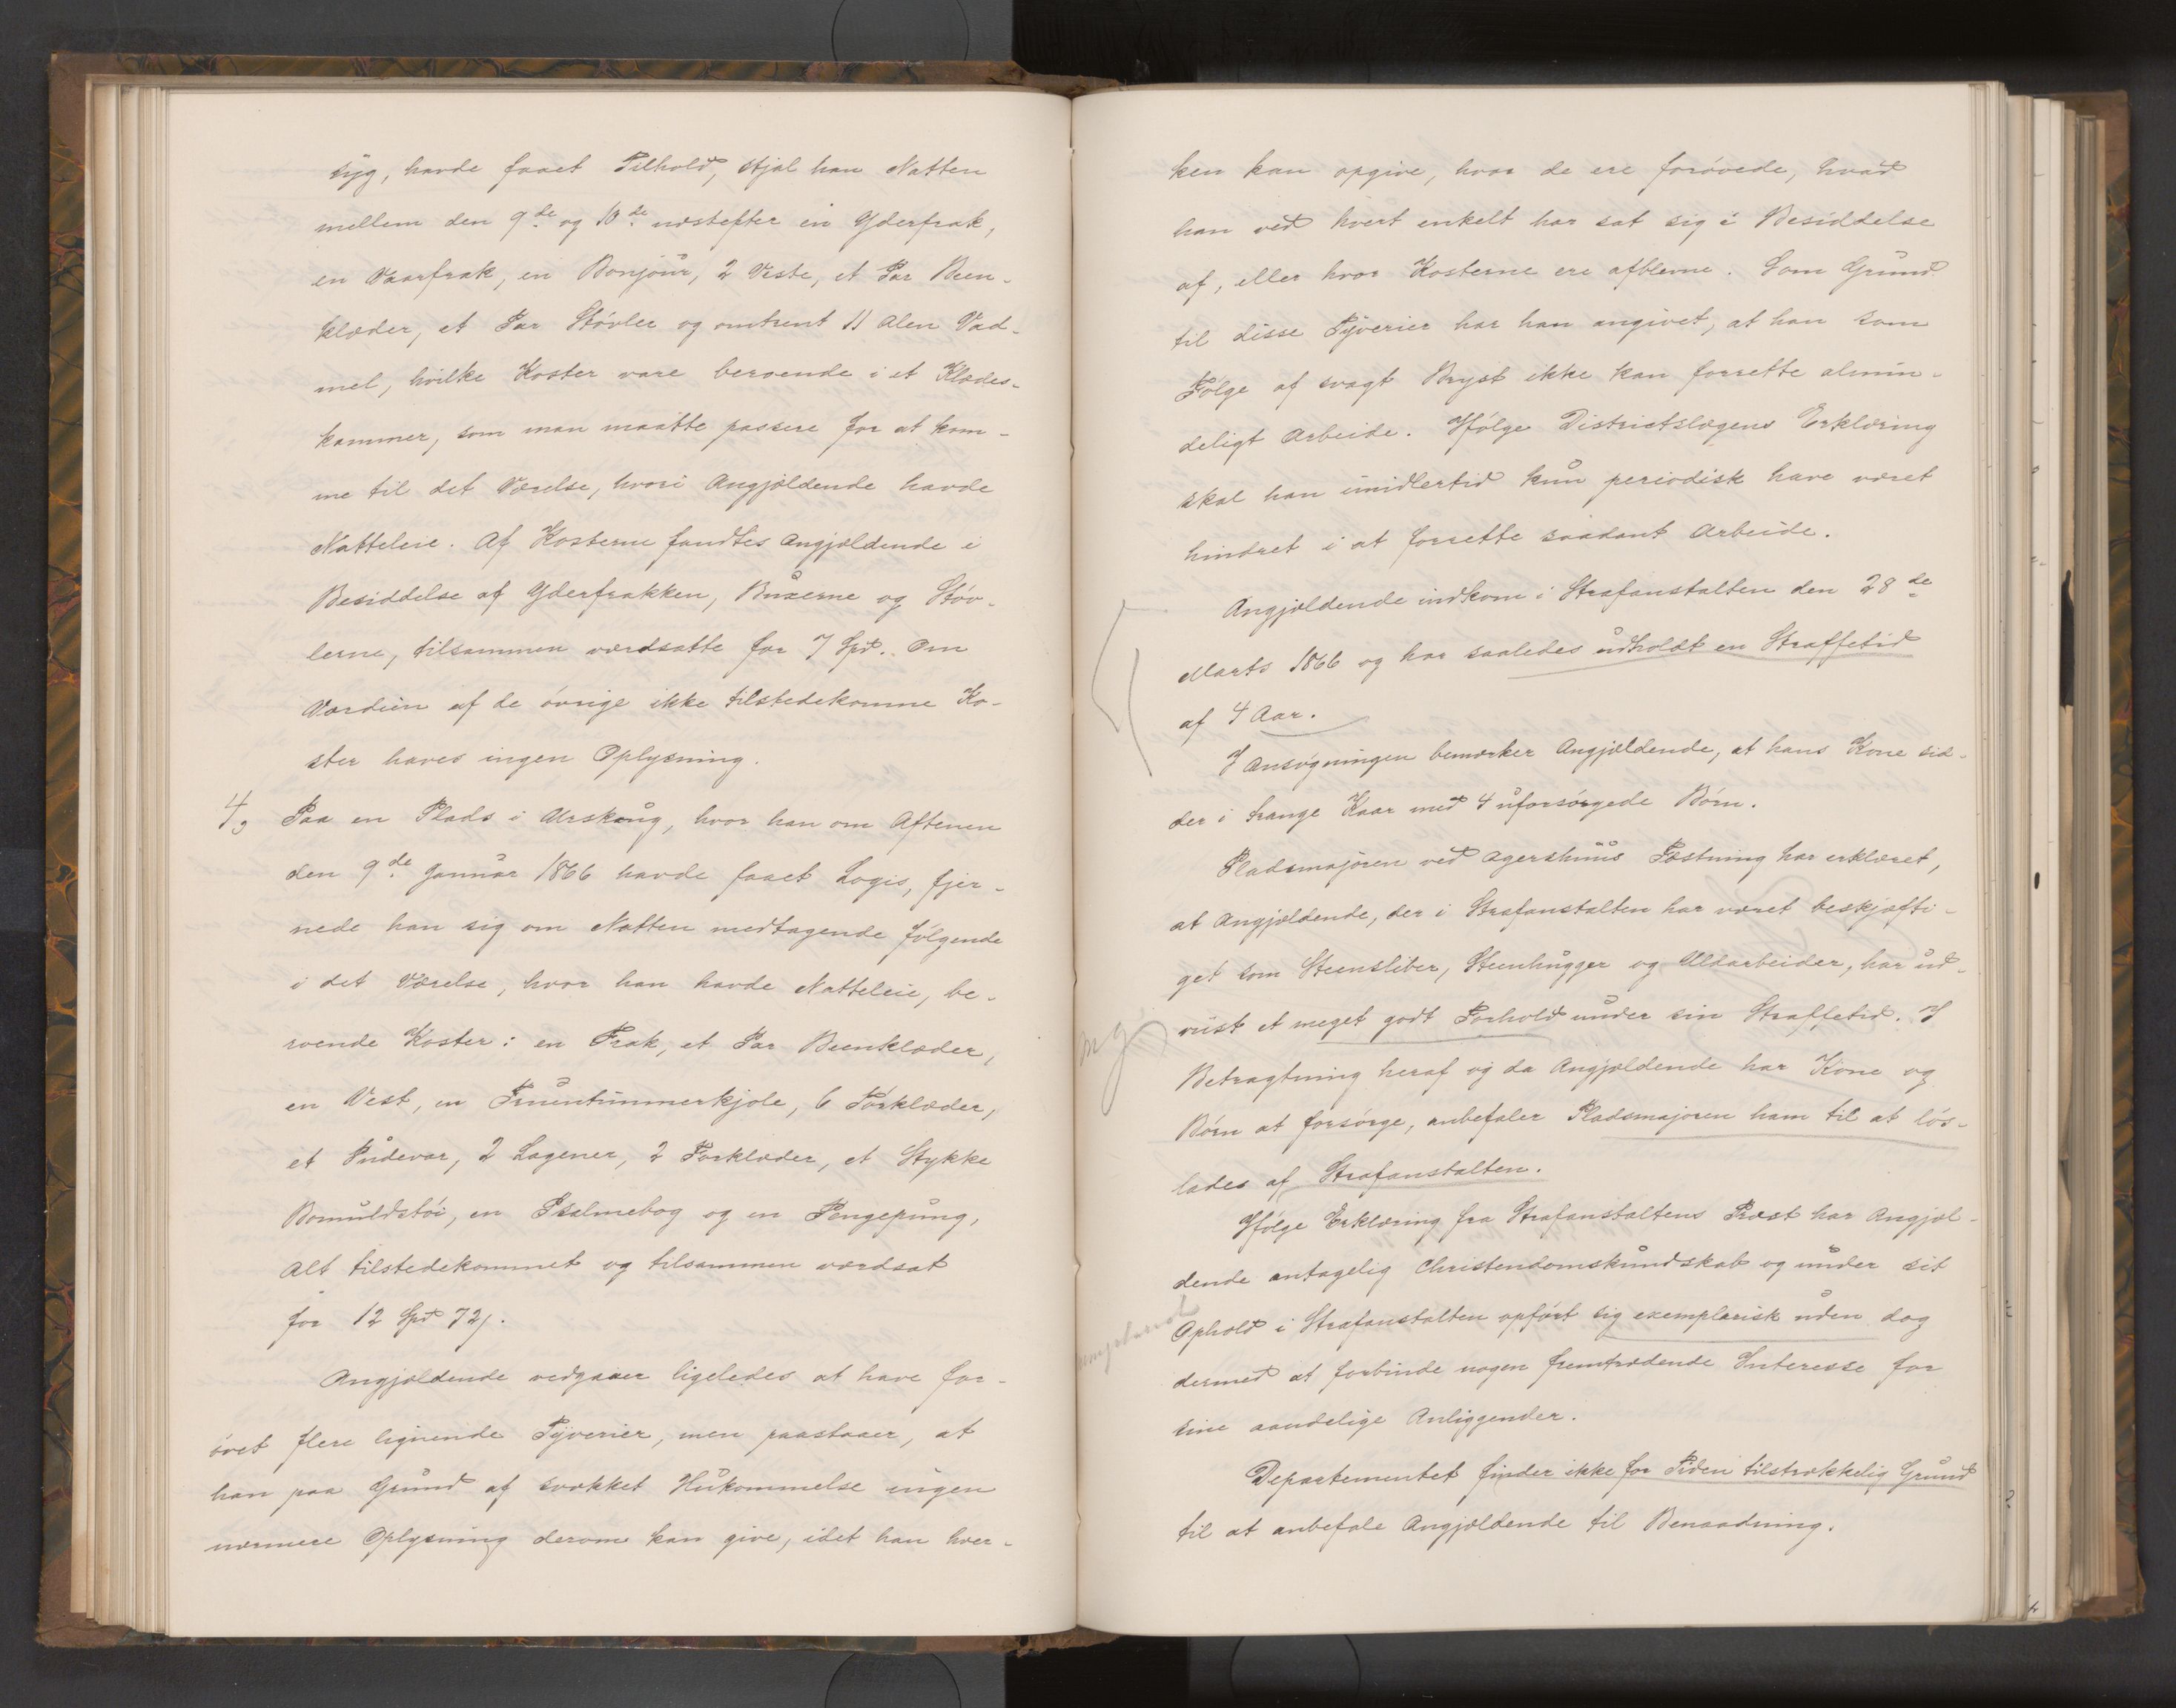 syg, havde faaet Tilhold, stjal han Natten
mellem den 9de og 10de næstefter en Yderfrak,
en Vaarfrak, en Bonjour, 2 Veste, et Par Been-
klæder, et Par Støvler og omtrent 11 Alen Vad-
mel, hvilke Koster vare beroende i et Klædes-
kammer, som man maatte passere for at kom-
me til det Værelse, hvori Angjældende havde
Natteleie. Af Kosterne fandtes Angjældende i
Besiddelse af Yderfrakken, Buxerne og Støv-
lerne, tilsammen værdsatte for 7 Spd. Om
Værdien af de øvrige ikke tilstedekomne Ko-
ster haves ingen Oplysning.
4, Paa en Plads i Urskoug, hvor han om Aftenen
den 9de Januar 1866 havde faaet Logis, fjer-
nede han sig om Natten medtagende følgende
i det Værelse, hvor han havde Natteleie, be-
roende Koster: en Frak, et Par Beenklæder,
en Vest, en Fruentimmerkjole, 6 Tørklæder,
et Pudevar, 2 Lagener, 2 Forklæder, et Stykke
Bomuldstøi, en Psalmebog og en Pengepung,
Alt tilstedekommet og tilsammen værdsat
for 12 Spd 72/.
Angjældende vedgaaer ligeledes at have for-
øvet flere lignende Tyverier, men paastaaer, at
han paa Grund af svækket Hukommelse ingen
nærmere Oplysning derom kan give, idet han hver-
ken kan opgive, hvor de ere forøvede, hvad
han ved hvert enkelt har sat sig i Besiddelse
af, eller hvor Kosterne ere afblevne. Som Grund
til disse Tyverier har han angivet, at han som
Følge af svagt Bryst ikke kan forrette almin-
deligt Arbeide. Ifølge Districtslægens Erklæring
skal han imidlertid kun periodisk have været
hindret i at forrette saadant Arbeide.
Angjældende indkom i Strafanstalten den 28de
Marts 1866 og har saaledes udholdt en Straffetid
af 4 Aar.
I Ansøgningen bemærker Angjældende, at hans Kone sid-
der i trange Kaar med 4 uforsørgede Børn.
Pladsmajoren ved Agershuus Fæstning har erklæret,
at Angjældende, der i Strafanstalten har været beskjæfti-
get som Steensliber, Steenhugger og Uldarbeider, har ud-
viist et meget godt Forhold under sin Straffetid. I
mg
Betragtning heraf og da Angjældende har Kone og
Børn at forsørge, anbefaler Pladsmajoren ham til at løs-
lades af Strafanstalten.
Ifølge Erklæring fra Strafanstaltens Præst har Angjæl-
dende antagelig Christendomskundskab og under sit
Ophold i Strafanstalten opført sig exemplarisk uden dog
dermed at forbinde nogen fremtrædende Interesse for
sine aandelige Anliggender.
Departementet finder ikke for Tiden tilstrækkelig Grund
til at anbefale Angjældende til Benaadning.